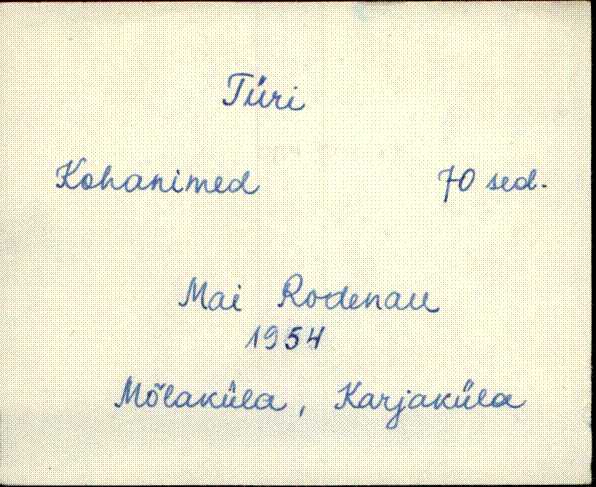 Türi
Kohanimed 70 sed.
Mai Rodenau
1954
Mõlaküla, Karjaküla